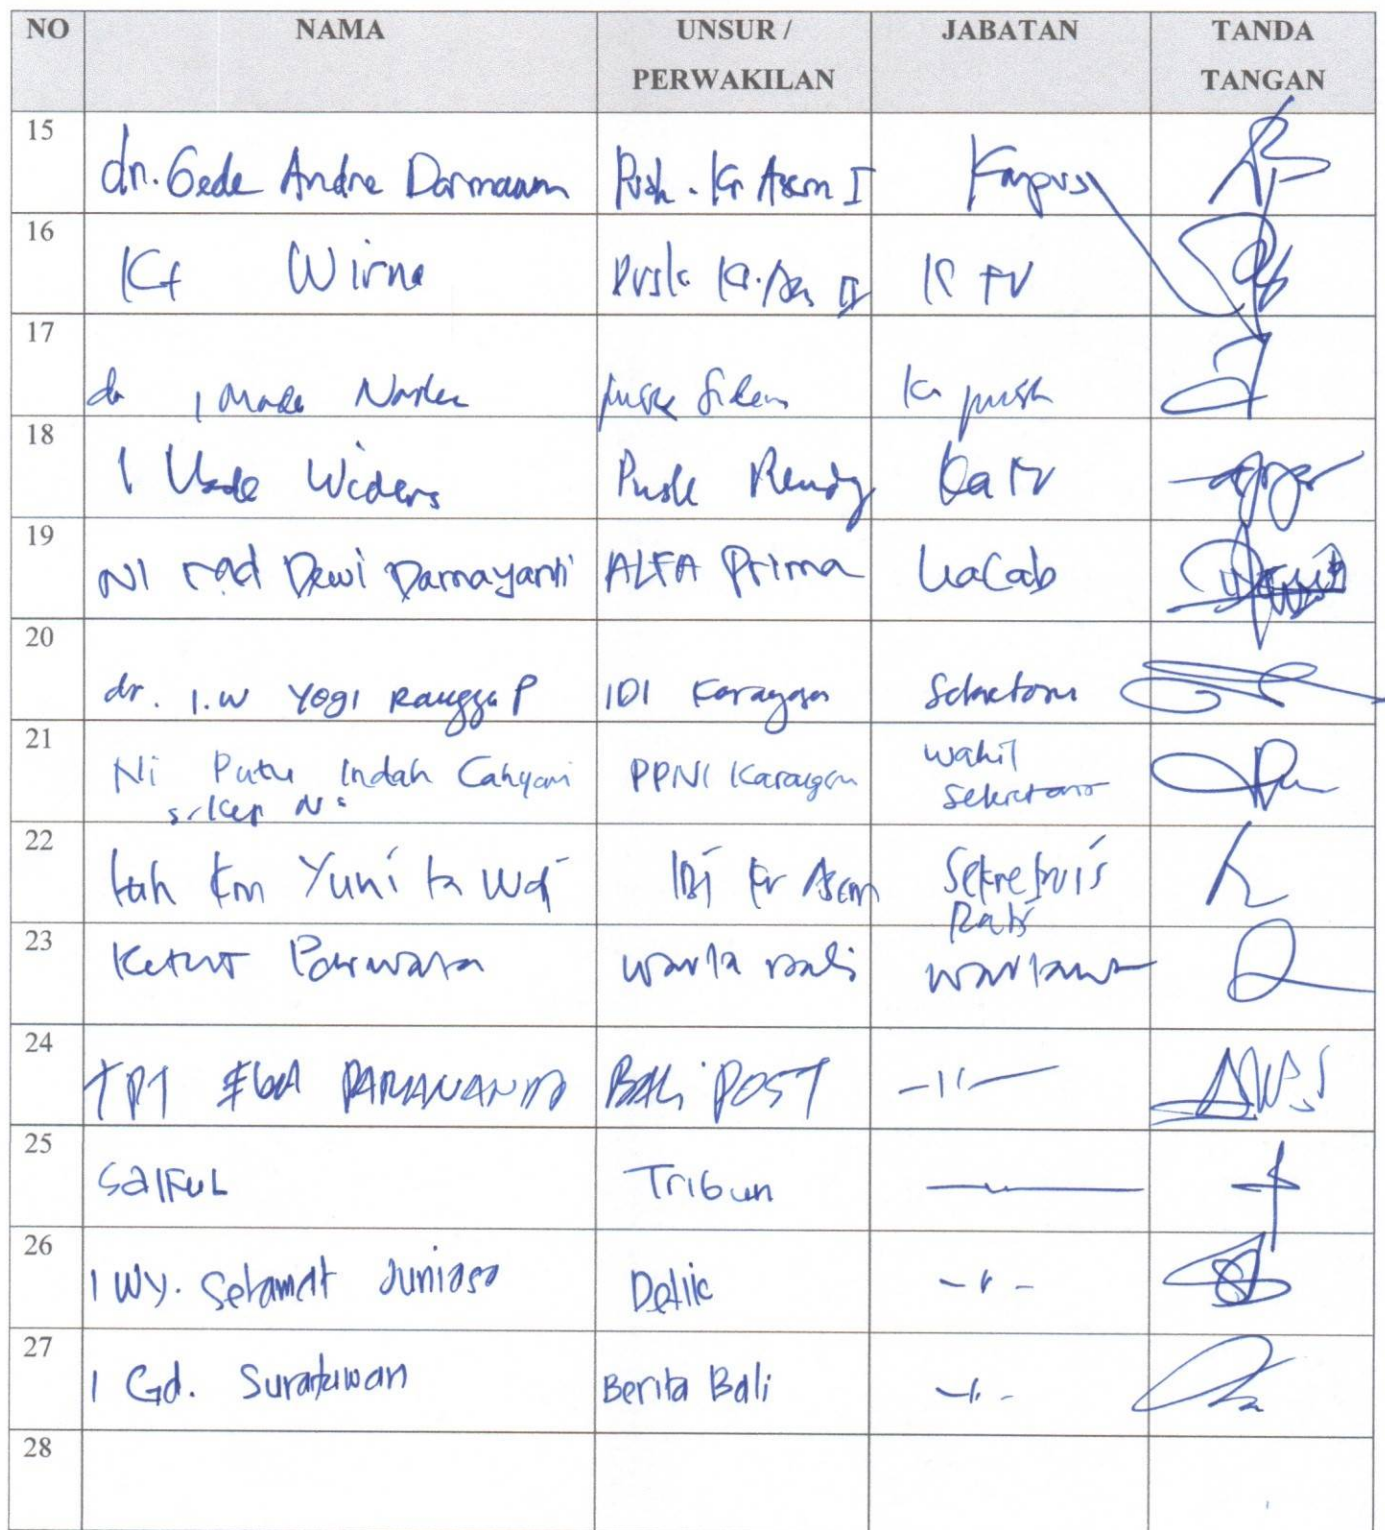 NO NAMA UNSUR / PERWAKILAN JABATAN TANDA TANGAN
15 dr. Gede Andre Darmawan Pusk. Kr Asem I Kapus
16 Kt Wirna Pusk Kr. As II K TU
17 dr I Made Pusk Sidem Ka pusk
18 I Made Widers Pusk Rendg Ka TU
19 NI Md Dewi Damayanti ALFA Prima KaCab
20 dr. I.W Yogi Rangga P IDI Karangasem Sekretaris
21 Ni Putu Indah Cahyani PPNI Karangasem Wakil
S.Kep Ns Sekretaris
22 Luh Km Yuni IBI Kr Asem Sekretaris
23 Ketut Parwata Warta Bali Wartawan
24 BALI POST -11-
25 SAIFUL Tribun
26 I Wy. Selamat Juniasa
27 I Gd. Suratawan Berita Bali
28